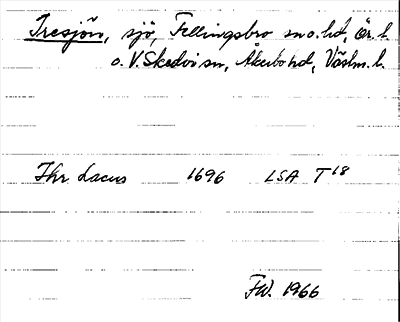 Tresjön, sjö, Fellingsbro sn o. hd, Ör. l.
o. V. Skedvi sn, Åkerbo hd, Västm. l.
Thr Lacus 1696 LSA T 18
FW. 1966